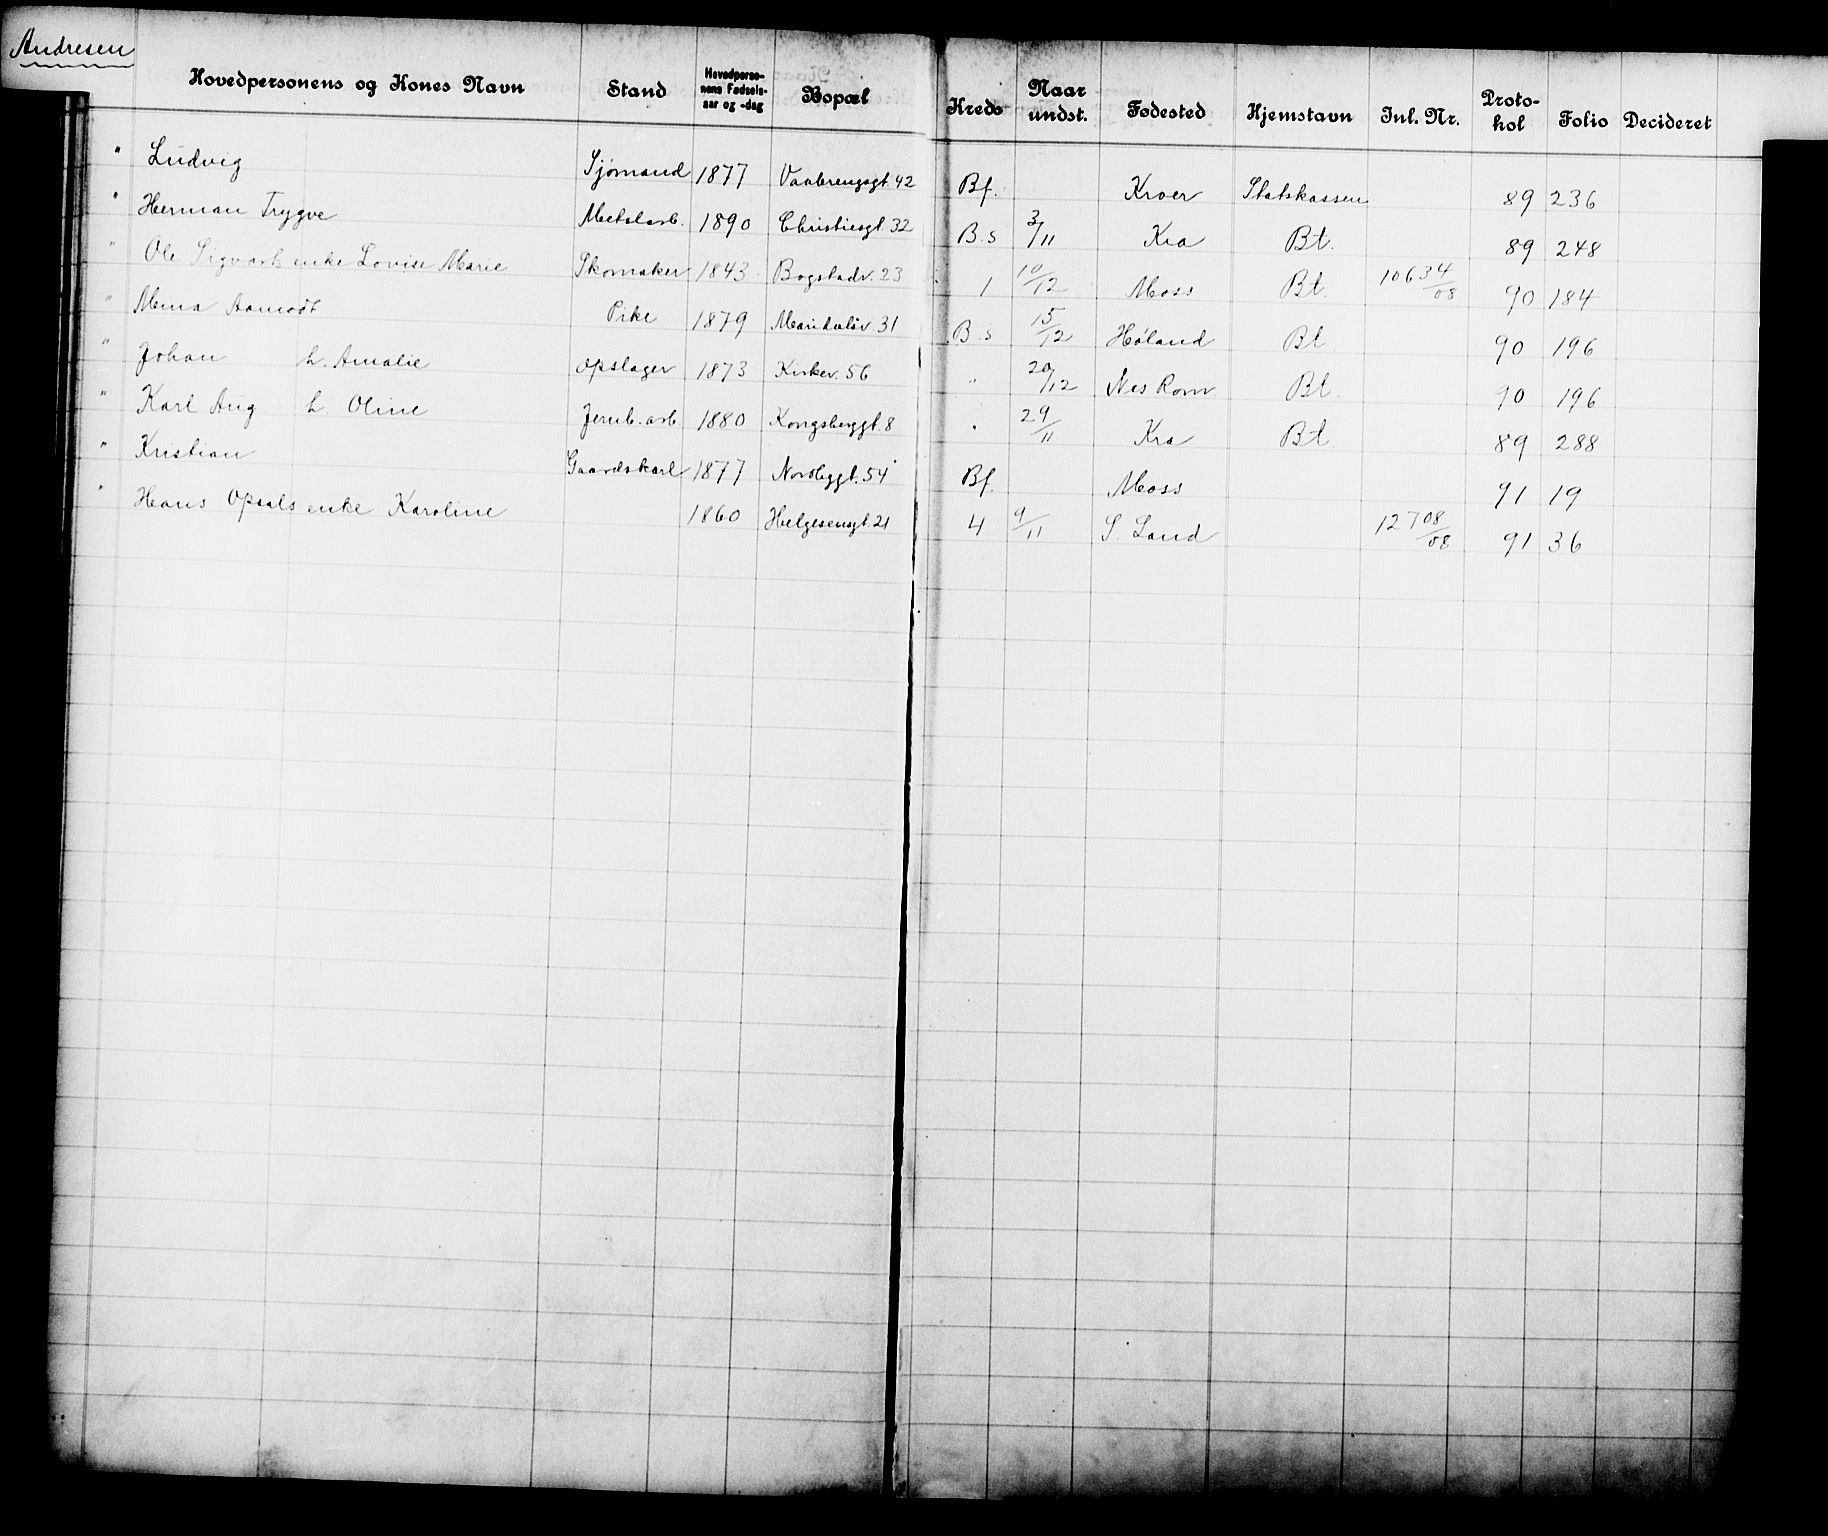 Andresen
Hovedpersonens og Kones Navn Stand Hovedpersonens Fødselsaar og -dag Bopæl Kreds Naar undst. Fødested Hjemstavn Inl. Nr. Protokol Folio Decideret
" Ludvig Sjømand 1877 Vaalerengsgt. 42 Bf. Kroer Statskassen 89 236
" Herman Trygve Metalarb. 1890 Christiesgt. 32 B.s 3/11 Kra Bt. 89 248
" Ole Sigvarts enke Lovise Marie Skomaker 1843 Bogstadv. 23 1 10/12 Moss Bt. 10634/08 90 184
" Mina Aamodt Pike 1879 Maridalsv. 31 B.s 15/12 Høland Bt 90 196
" Johan h. Amalie opslager 1873 Kirkev. 56 " 20/12 Nes Rom. Bt. 90 196
" Karl Aug. h. Oline Jernb.arb. 1880 Kongsberggt. 8 " 29/11 Kra Bt 89 288
" Kristian Gaardskarl 1877 Nordbygt. 54 Bf. Moss 91 19
" Hans Opsals enke Karoline 1860 Helgesensgt. 21 4 9/11 S. Land 12708/08 91 36